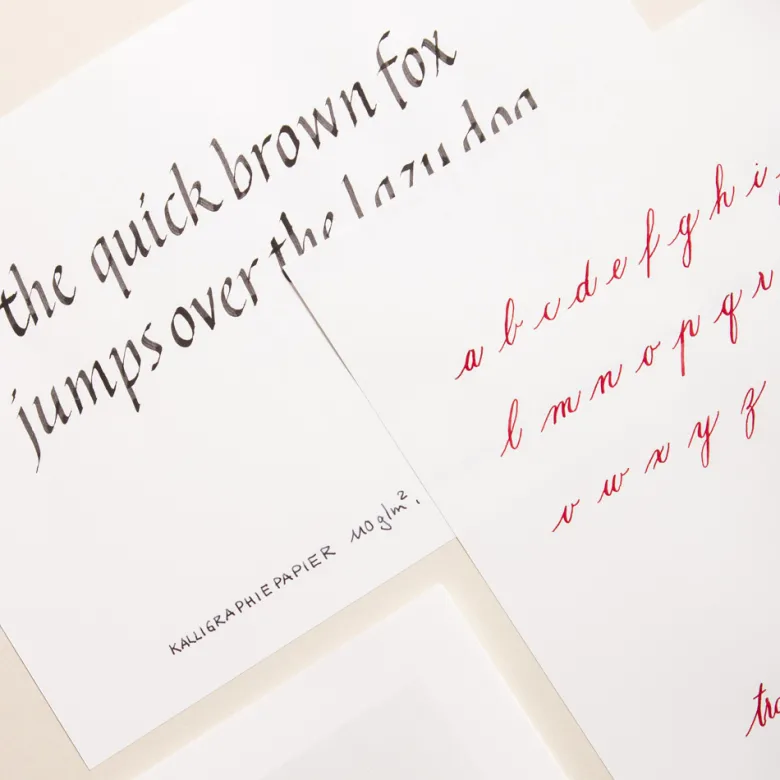 the quick brown fox
jumps over the lazy dog
KALLIGRAPHIEPAPIER 110 g/m².
a b c d e f g h i
l m n o p q r
v w x y z